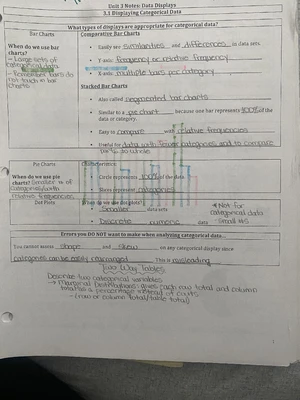 Unit 3 Notes: Data Displays
3.1 Displaying Categorical Data
What types of displays are appropriate for categorical data?
Bar Charts
Comparative Bar Charts
When do we use bar charts?
- Large sets of categorical data
- Remember bars do not touch in bar charts
• Easily see similarities and differences in data sets.
• Y-axis: frequency or relative frequency
• X-axis: multiple bars per category
Stacked Bar Charts
• Also called segmented bar charts
• Similar to a pie chart because one bar represents 100% of the data or category.
• Easy to compare with relative frequencies
• Useful for data with fewer categories and to compare parts to whole
Pie Charts
Characteristics:
When do we use pie charts? Smaller # of categories with relative frequencies
• Circle represents 100% of the data.
• Slices represent categories
Dot Plots
When do we use dot plots?
• Smaller data sets
• Discrete numeric data
*Not for categorical data
Small #s
Errors you DO NOT want to make when analyzing categorical data
You cannot assess shape and skew on any categorical display since
categories can be easily rearranged. This is misleading
Two Way Tables
Describe two categorical variables
→ Marginal Distributions: gives each row total and column
total as a percentage instead of counts
- (row or column total/table total)
1